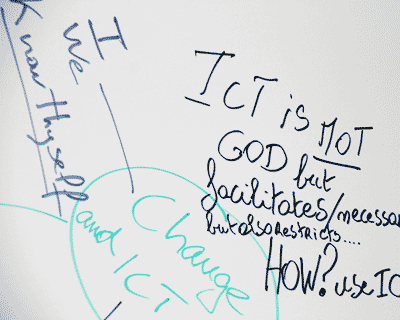 I
We
Know thyself
Change
and ICT
ICT is NOT
GOD but
facilitates/necessar
but also restricts....
HOW? use IC